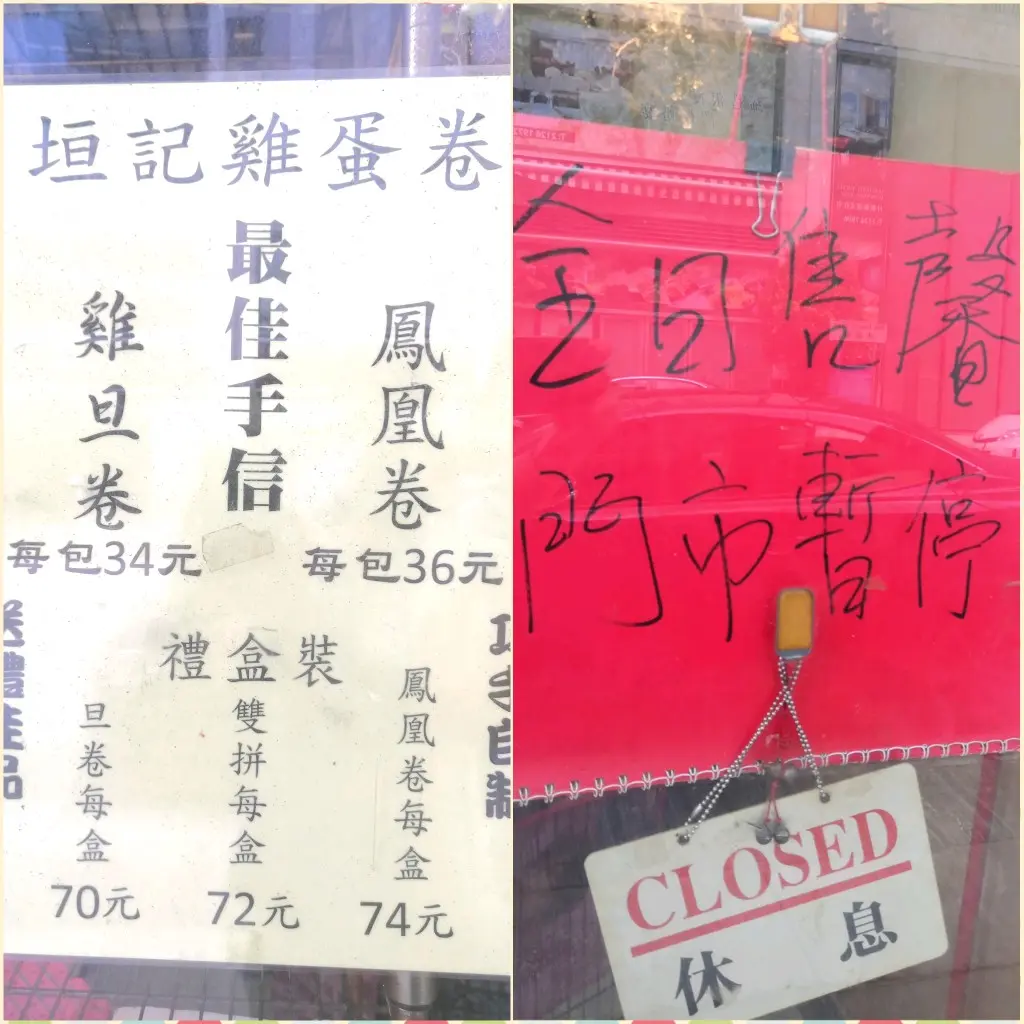 垣記雞蛋卷
最佳手信
雞旦卷
每包34元
鳳凰卷
每包36元
送禮佳品
禮盒裝
巧手自製
旦卷每盒
70元
雙拼每盒
72元
鳳凰卷每盒
74元
全日售馨
門市暫停
CLOSED
休息